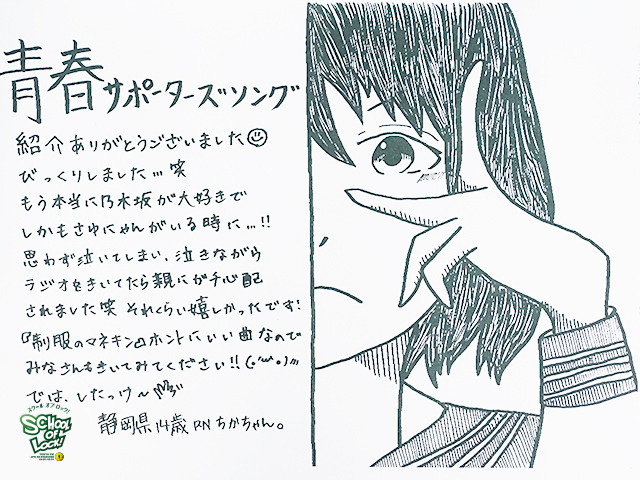 青春サポーターズソング
紹介ありがとうございました☺
びっくりしました…笑
もう本当に乃木坂が大好きで
しかもさゆにゃんがいる時に…!!
思わず泣いてしまい、泣きながら
ラジオをきいてたら親にガチ心配
されました笑 それくらい嬉しかったです!
『制服のマネキン』ホントにいい曲なので
みなさんもきいてみてください!! (。'ω'。)
では、したっけ〜
静岡県 14歳 RN ちかちゃん。
スクール オブ ロック!
SCHOOL
OF
LOCK!